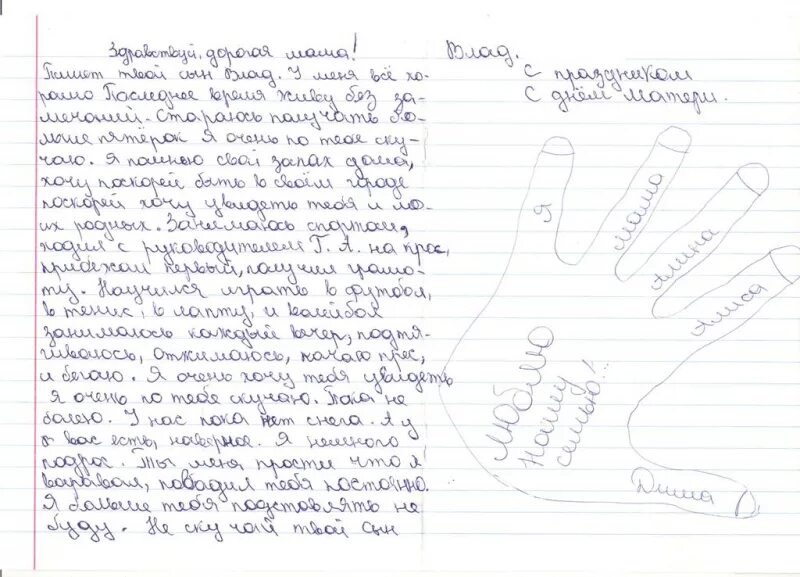 Здравствуй, дорогая мама!
Пишет твой сын Влад. У меня всё хо-
рашо Последнее время живу без за-
мечаний. Стараюсь получать бо-
льше пятёрок Я очень по тебе ску-
чаю. Я помнью свой запах дома,
хочу поскорей быть в своём городе
поскорей хочу увидеть тебя и мо-
их родных. Занимаюсь спортом,
ходил с руководителем Т. А. на крос,
прибежал первый, получил грамо-
ту. Научился играть в футбол,
в теник, в лапту, и валейбол
занимаюсь каждый вечер, подтя-
гиваюсь, отжимаюсь, качаю прес,
и бегаю. Я очень хочу тебя увидеть
я очень по тебе скучаю. Пока не
болею. У нас пока нет снега. А у
вас есть, наверное. Я немного
подрос. Ты меня прости что я
постоянно.
Я больше тебя подставлять не
буду. Не скучай твой сын
Влад.
С праздником
С днём матери.
Я
мама
Алина
Алиса
Дима
Люблю
нашу
семью!..